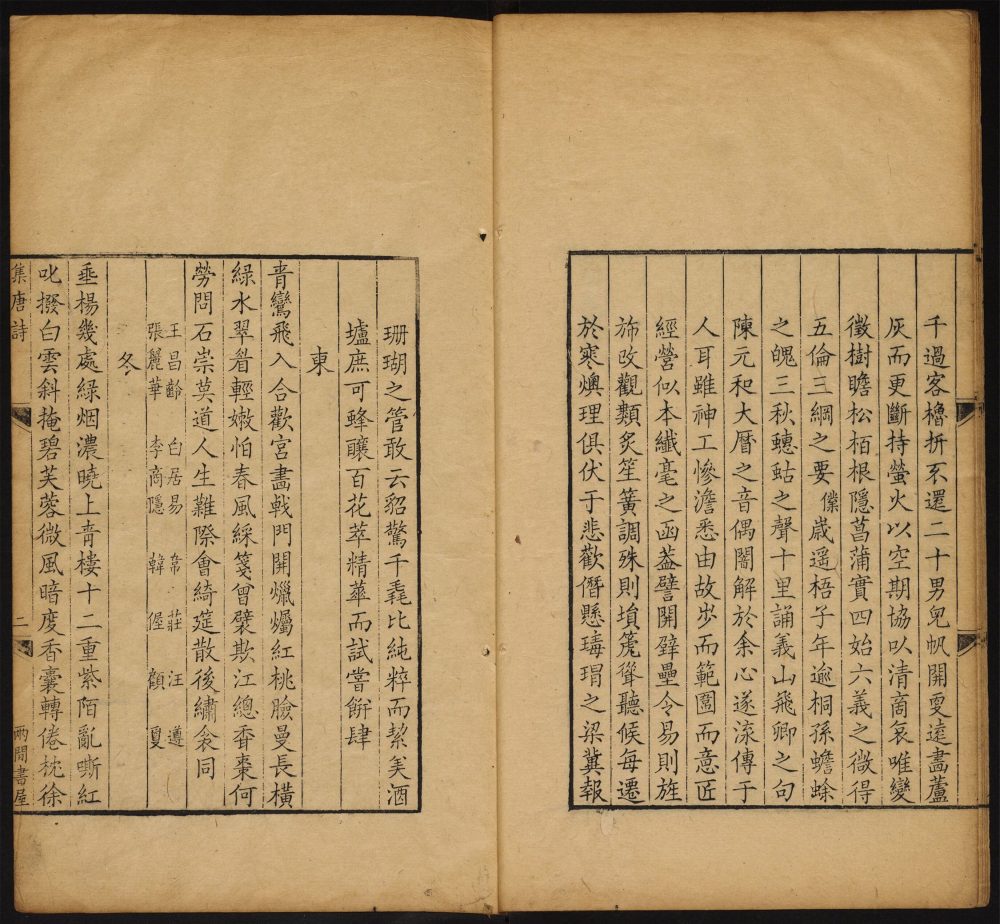 千過客櫓折不還二十男兒帆開更遠畵蘆
灰而更斷持螢火以空期協以清商哀唯變
徵樹瞻松栢根隱菖蒲實四始六義之微得
五倫三綱之要儻歲遥梧子年逾桐孫蟾蜍
之魄三秋蟪蛄之聲十里誦義山飛卿之句
陳元和大曆之音偶闇解於余心遂流傳于
人耳雖神工慘澹悉由故步而範圍而意匠
經營似本纖毫之函葢譬開壁壘令易則旌
斾改觀類炙笙簧調殊則塤箎聳聽候每遷
於寒燠理俱伏于悲歡僭懸瑇瑁之梁冀報
珊瑚之管敢云貂驚千毳比純粹而絜美酒
壚庶可蜂釀百花萃精華而試嘗餅肆
東
青鸞飛入合歡宮畵戟門開爉爥紅桃臉曼長橫
綠水翠眉輕嫩怕春風綵箋曾襞欺江總香棗何
勞問石崇莫道人生難際會綺筵散後繡衾同
王昌齡 白居易 韋莊 汪遵
張麗華 李商隱 韓偓 顧夐
冬
垂楊幾處綠烟濃曉上靑樓十二重紫陌亂嘶紅
叱撥白雲斜掩碧芙蓉微風暗度香囊轉倦枕徐
集唐詩 二 兩間書屋